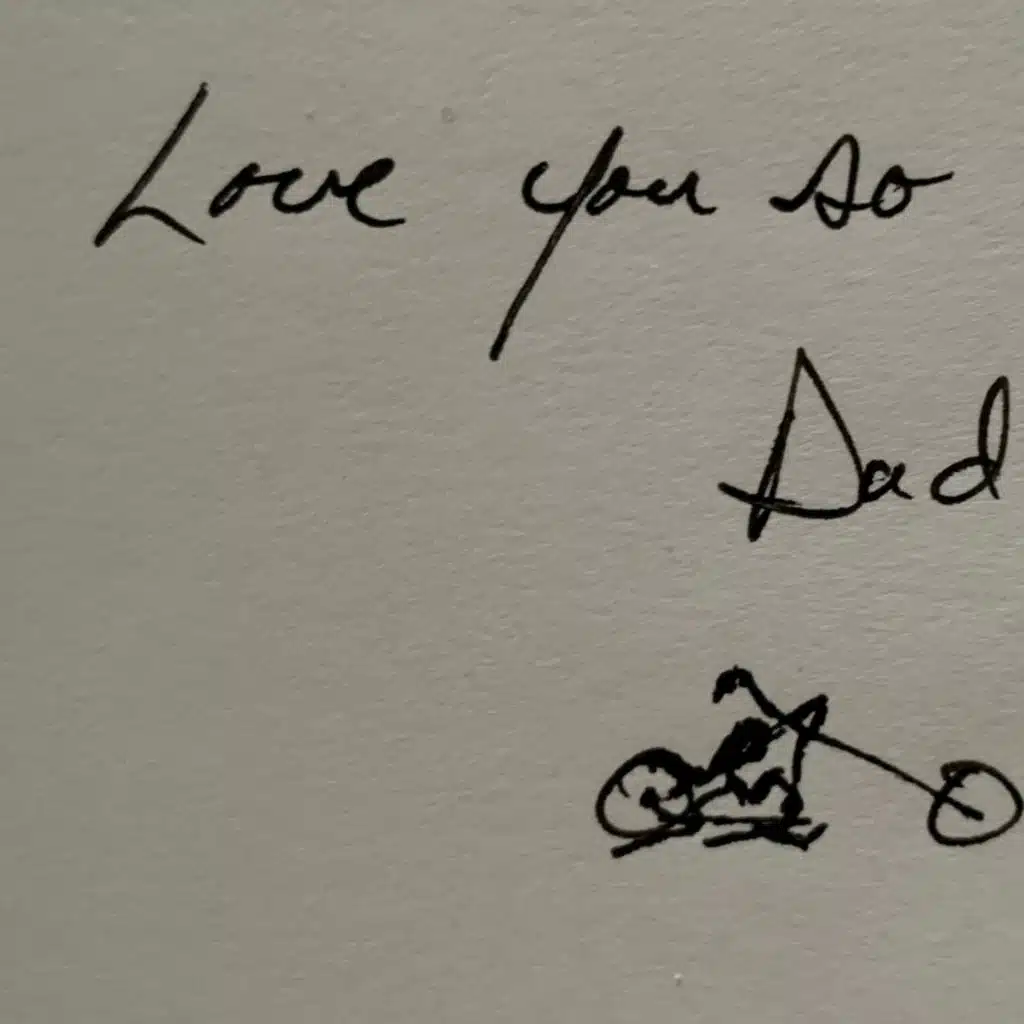 Love you so
Dad